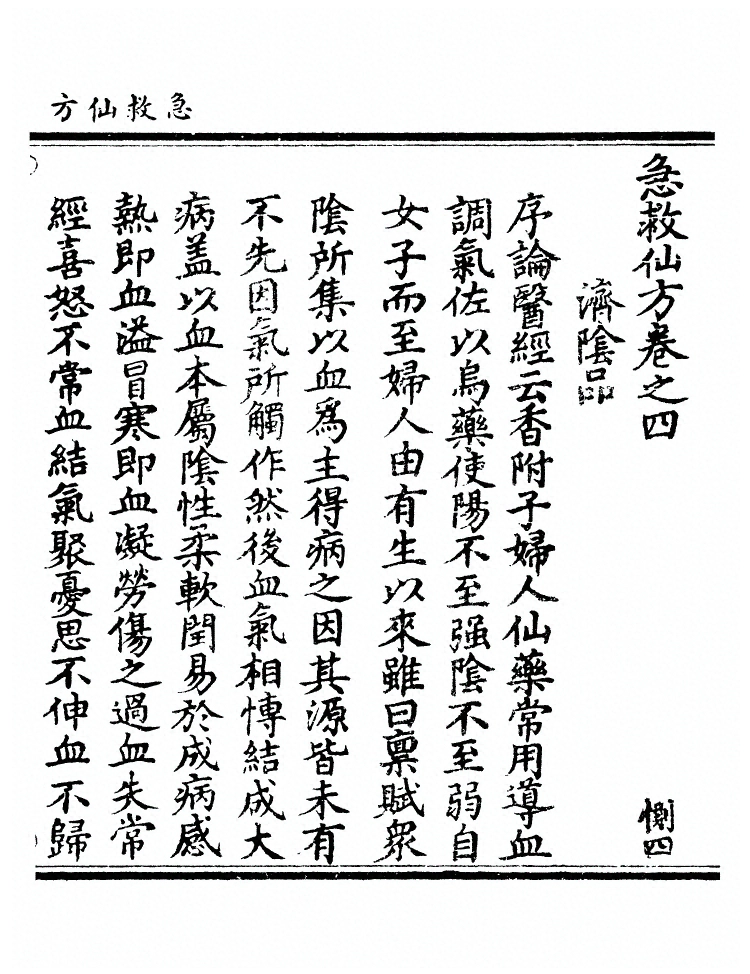 急救仙方
急救仙方卷之四
惻四
濟陰品
序論醫經云香附子婦人仙藥常用導血
調氣佐以烏藥使陽不至强陰不至弱自
女子而至婦人由有生以來雖曰禀賦眾
陰所集以血爲主得病之因其源皆未有
不先因氣所觸作然後血氣相慱結成大
病盖以血本屬陰性柔軟閏易於成病感
熱即血溢冒寒即血凝勞傷之過血失常
經喜怒不常血結氣聚憂思不伸血不歸